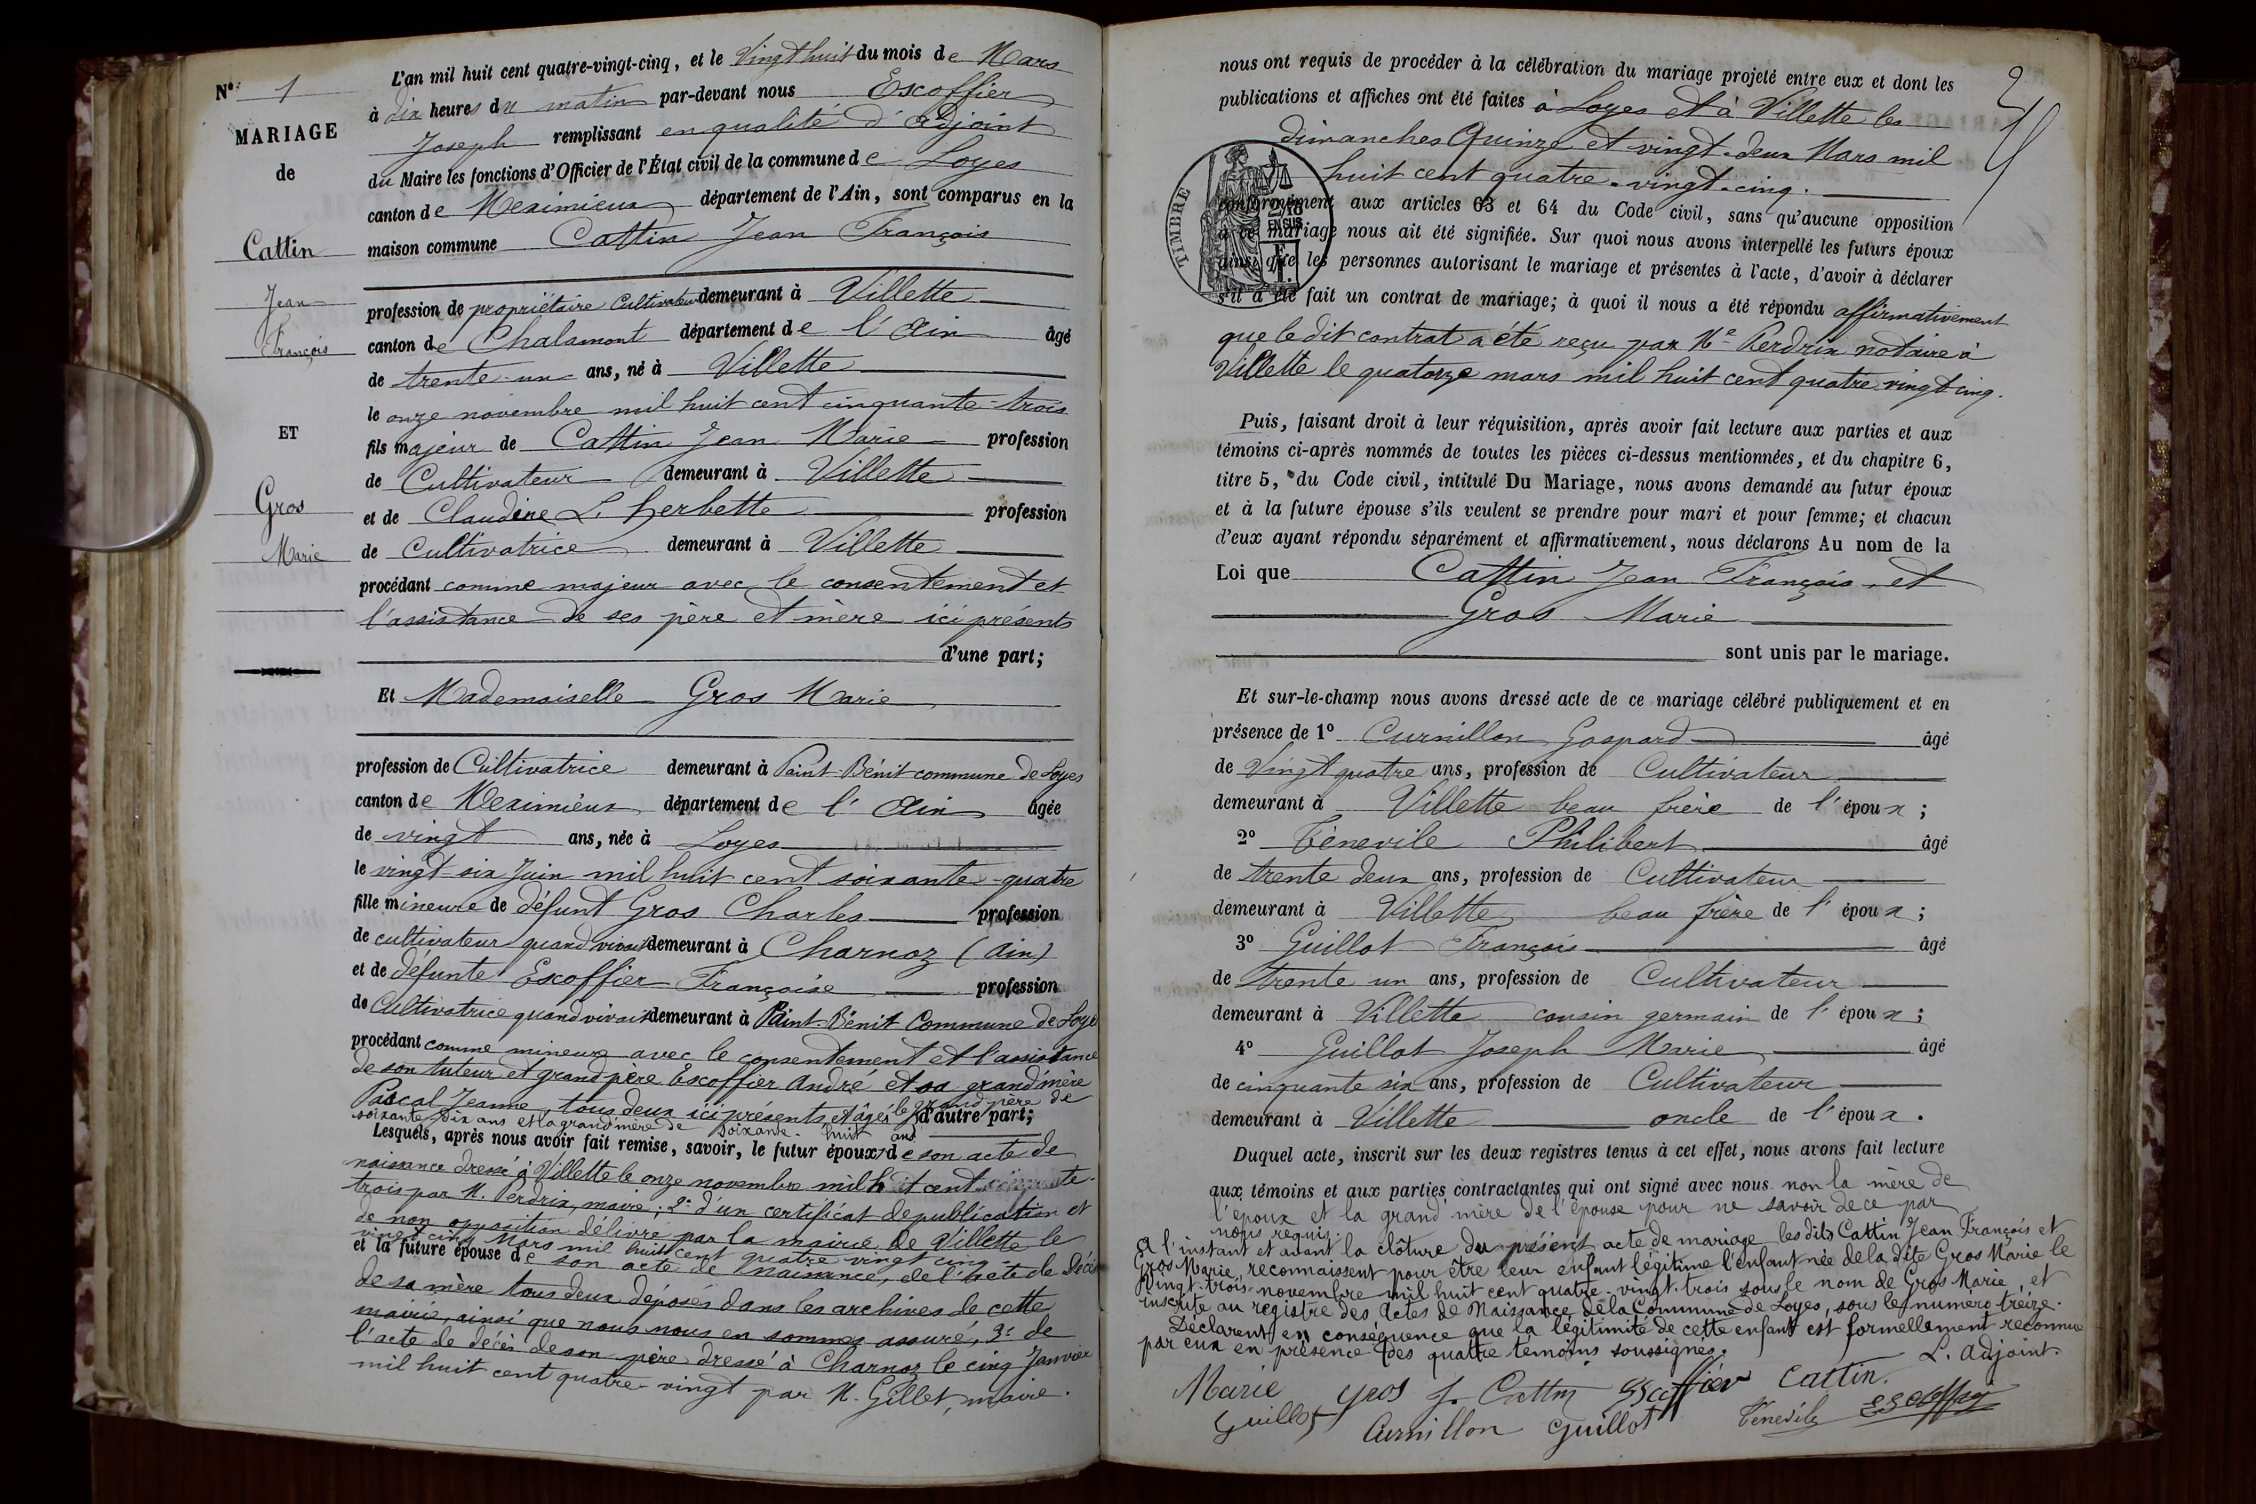 N° 1
MARIAGE
de
Cattin
Jean
François
ET
Gros
Marie
L'an mil huit cent quatre-vingt-cinq, et le Vingt huit du mois de Mars
à dix heures du matin par-devant nous Escoffier
Joseph remplissant en qualité d'adjoint
du Maire les fonctions d'Officier de l'État civil de la commune de Loyes
canton de Meximieux département de l'Ain, sont comparus en la
maison commune Cattin Jean François
profession de propriétaire Cultivateur demeurant à Villette
canton de Chalamont département de l'Ain âgé
de trente-un ans, né à Villette
le onze novembre mil huit cent cinquante-trois
fils majeur de Cattin Jean Marie profession
de Cultivateur demeurant à Villette
et de Claudine L'herbette profession
de Cultivatrice demeurant à Villette
procédant comme majeur avec le consentement et
l'assistance de ses père et mère ici présents
d'une part;
Et Mademoiselle Gros Marie
profession de Cultivatrice demeurant à Saint-Bénit commune de Loyes
canton de Meximieux département de l'Ain âgée
de vingt ans, née à Loyes
le vingt six Juin mil huit cent soixante-quatre
fille mineure de défunt Gros Charles profession
de cultivateur quand vivait demeurant à Charnoz (Ain)
et de défunte Escoffier Françoise profession
de Cultivatrice quand vivait demeurant à Saint-Bénit Commune de Loyes
procédant comme mineure avec le consentement et l'assistance
de son tuteur et grand père Escoffier André et sa grand'mère
Pascal Jeanne, tous deux ici présents et âgés le grand père de
soixante dix ans et la grand mère de soixante-huit ans d'autre part;
Lesquels, après nous avoir fait remise, savoir, le futur époux de son acte de
naissance dressé à Villette le onze novembre mil huit cent cinquante-
trois par M. Perdrix, maire; 2° d'un certificat de publication et
de non opposition délivré par la mairie de Villette le
vingt cinq Mars mil huit cent quatre vingt cinq
et la future épouse de son acte de naissance, de l'acte de décès
de sa mère tous deux déposés dans les archives de cette
mairie, ainsi que nous nous en sommes assuré, 3° de
l'acte de décès de son père dressé à Charnoz le cinq Janvier
mil huit cent quatre-vingt par M. Gillet, maire.
2
nous ont requis de procéder à la célébration du mariage projeté entre eux et dont les
publications et affiches ont été faites à Loyes et à Villette les
dimanches Quinze et vingt-deux Mars mil
huit cent quatre-vingt-cinq.
TIMBRE
conformément aux articles 63 et 64 du Code civil, sans qu'aucune opposition
à ce mariage nous ait été signifiée. Sur quoi nous avons interpellé les futurs époux
ainsi que les personnes autorisant le mariage et présentes à l'acte, d'avoir à déclarer
s'il a été fait un contrat de mariage; à quoi il nous a été répondu affirmativement
que le dit contrat a été reçu par Me Perdrix notaire à
Villette le quatorze mars mil huit cent quatre vingt cinq.
Puis, faisant droit à leur réquisition, après avoir fait lecture aux parties et aux
témoins ci-après nommés de toutes les pièces ci-dessus mentionnées, et du chapitre 6,
titre 5, du Code civil, intitulé Du Mariage, nous avons demandé au futur époux
et à la future épouse s'ils veulent se prendre pour mari et pour femme; et chacun
d'eux ayant répondu séparément et affirmativement, nous déclarons Au nom de la
Loi que Cattin Jean François et
Gros Marie
sont unis par le mariage.
Et sur-le-champ nous avons dressé acte de ce mariage célébré publiquement et en
présence de 1° Curnillon Gaspard âgé
de Vingt quatre ans, profession de Cultivateur
demeurant à Villette beau frère de l'époux;
2° Tènevile Philibert âgé
de trente deux ans, profession de Cultivateur
demeurant à Villette beau frère de l'époux;
3° Guillot François âgé
de trente un ans, profession de Cultivateur
demeurant à Villette cousin germain de l'époux;
4° Guillot Joseph Marie âgé
de cinquante six ans, profession de Cultivateur
demeurant à Villette oncle de l'époux.
Duquel acte, inscrit sur les deux registres tenus à cet effet, nous avons fait lecture
aux témoins et aux parties contractantes qui ont signé avec nous non la mère de
l'époux et la grand'mère de l'épouse pour ne savoir de ce par
nous requis.
A l'instant et avant la clôture du présent acte de mariage les dits Cattin Jean François et
Gros Marie, reconnaissent pour être leur enfant légitime l'enfant née de la dite Gros Marie le
Vingt-trois novembre mil huit cent quatre-vingt-trois sous le nom de Gros Marie, et
inscrite au registre des Actes de Naissance de la Commune de Loyes, sous le numéro treize.
Déclarent en conséquence que la légitimité de cette enfant est formellement reconnue
par eux en présence des quatre temoins soussignes.
L. adjoint.
Marie Gros J. Cattin Escoffier Cattin.
Guillot Curnillon Guillot Tenevile Escoffier